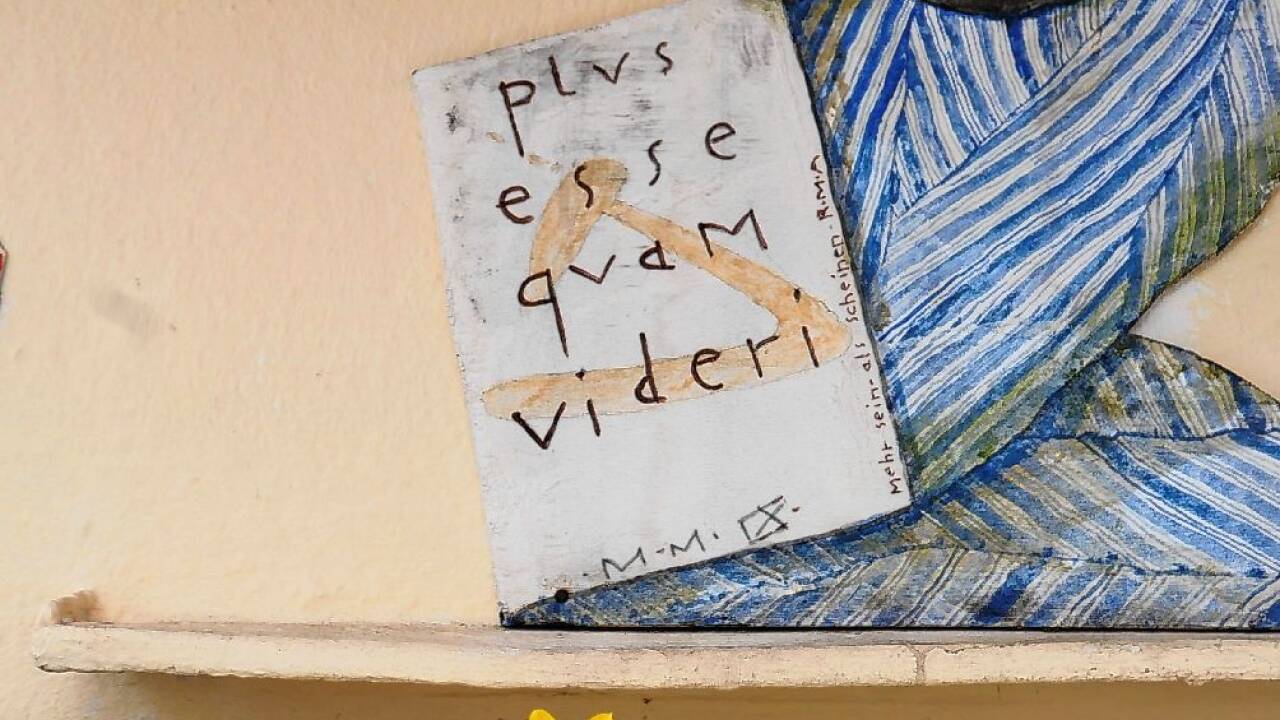 plvs
esse
qvaM
videri
Mehr sein-als scheinen-R.M.A
.M.M.IX.